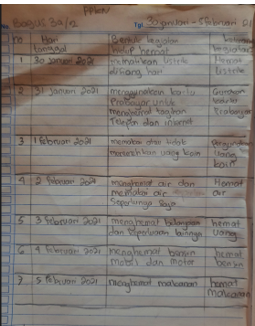 PPKN
Bagus 3a/2 Tgl 30 Januari - 5 Februari 21
no Hari tanggal Bentuk kegiatan hidup hemat
1 30 Januari 2021 mematikan listrik Hemat
disiang hari listrik
2 31 Januari 2021 menggunakan kartu
Prabayar untuk kartu
tagihan Prabayar
Telepon dan internet
3 1 Februari 2021 memakai dan tidak
uang koin uang
koin
4 2 Februari 2021 menghemat air dan Hemat
memakai air air
Seperlunya Saja
5 3 Februari 2021 menghemat hemat
dan keperluan lainnya uang
6 4 Februari 2021 menghemat bensin hemat
mobil dan motor bensin
7 5 Februari 2021 menghemat makanan hemat
makanan